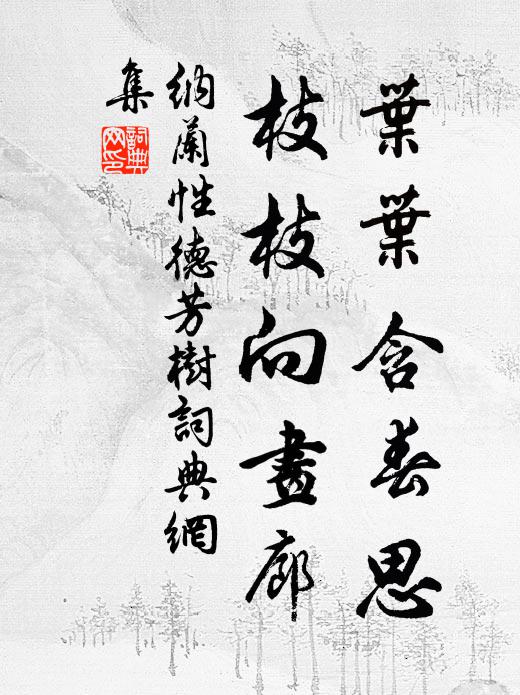 葉葉含春思
枝枝向畫廊
納蘭性德芳樹詞典網
集
詞典網印